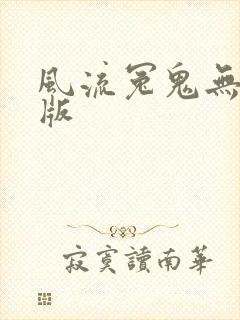 風流冤鬼無
版
寂寞讀南華